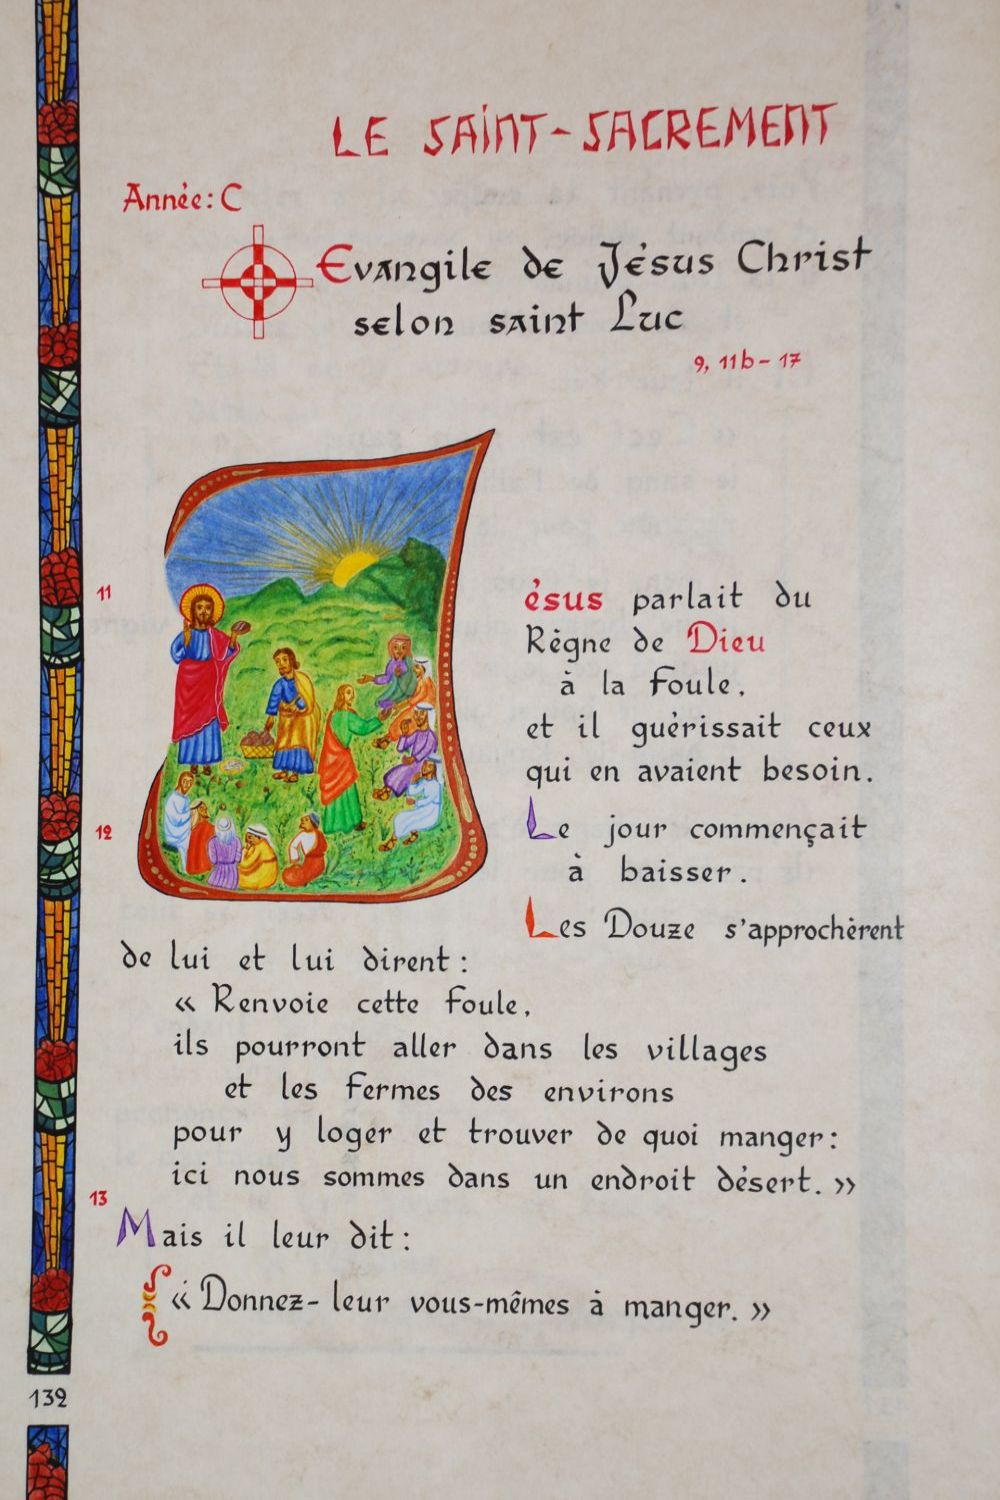 LE SAINT-SACREMENT
Année: C
Evangile de Jésus Christ
selon saint Luc
9, 11b - 17
11
ésus parlait du
Règne de Dieu
à la foule,
et il guérissait ceux
qui en avaient besoin.
12
Le jour commençait
à baisser.
Les Douze s'approchèrent
de lui et lui dirent :
« Renvoie cette foule,
ils pourront aller dans les villages
et les fermes des environs
pour y loger et trouver de quoi manger :
ici nous sommes dans un endroit désert. »
13
Mais il leur dit :
« Donnez-leur vous-mêmes à manger. »
132